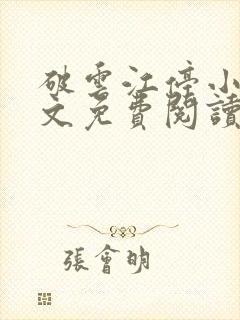 破雲江停小
文免費閱讀
張會明